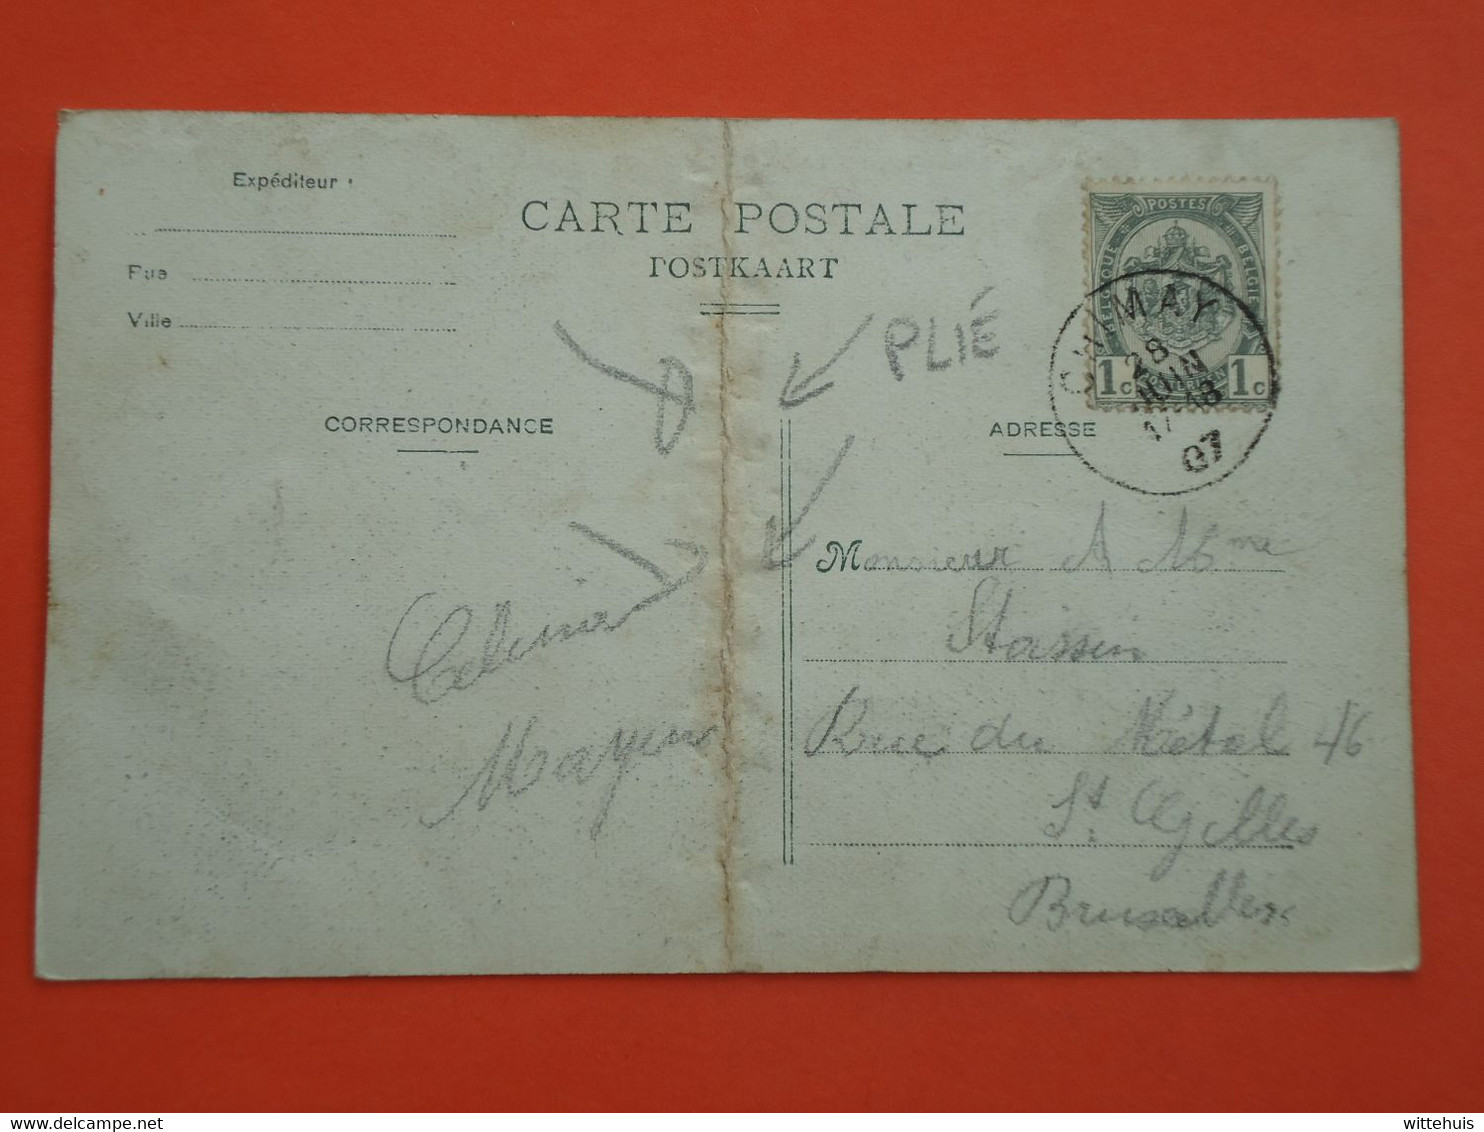 Expéditeur :
Rue
Ville
CARTE POSTALE
POSTKAART
POSTES
BELGIQUE
BELGIE
1c 1c
CHIMAY
28
JUIN
17-18
07
PLIÉ
CORRESPONDANCE
ADRESSE
Celina
Mayeur
Monsieur A Mme
Stassin
Rue du Métal 46
St Gilles
Bruxelles
delcampe.net
wittehuis